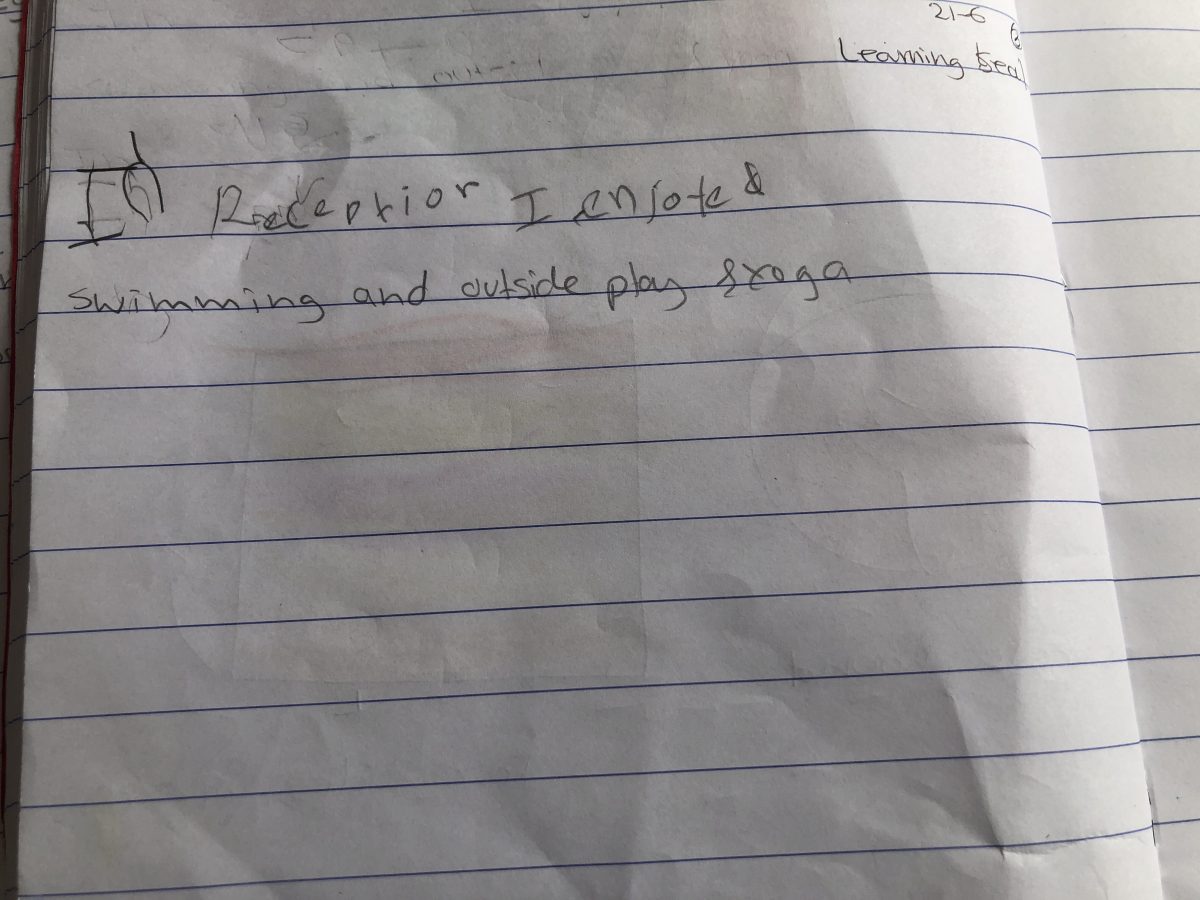 21-6
Learning
In Reception I enjoyed
swimming and outside play & yoga